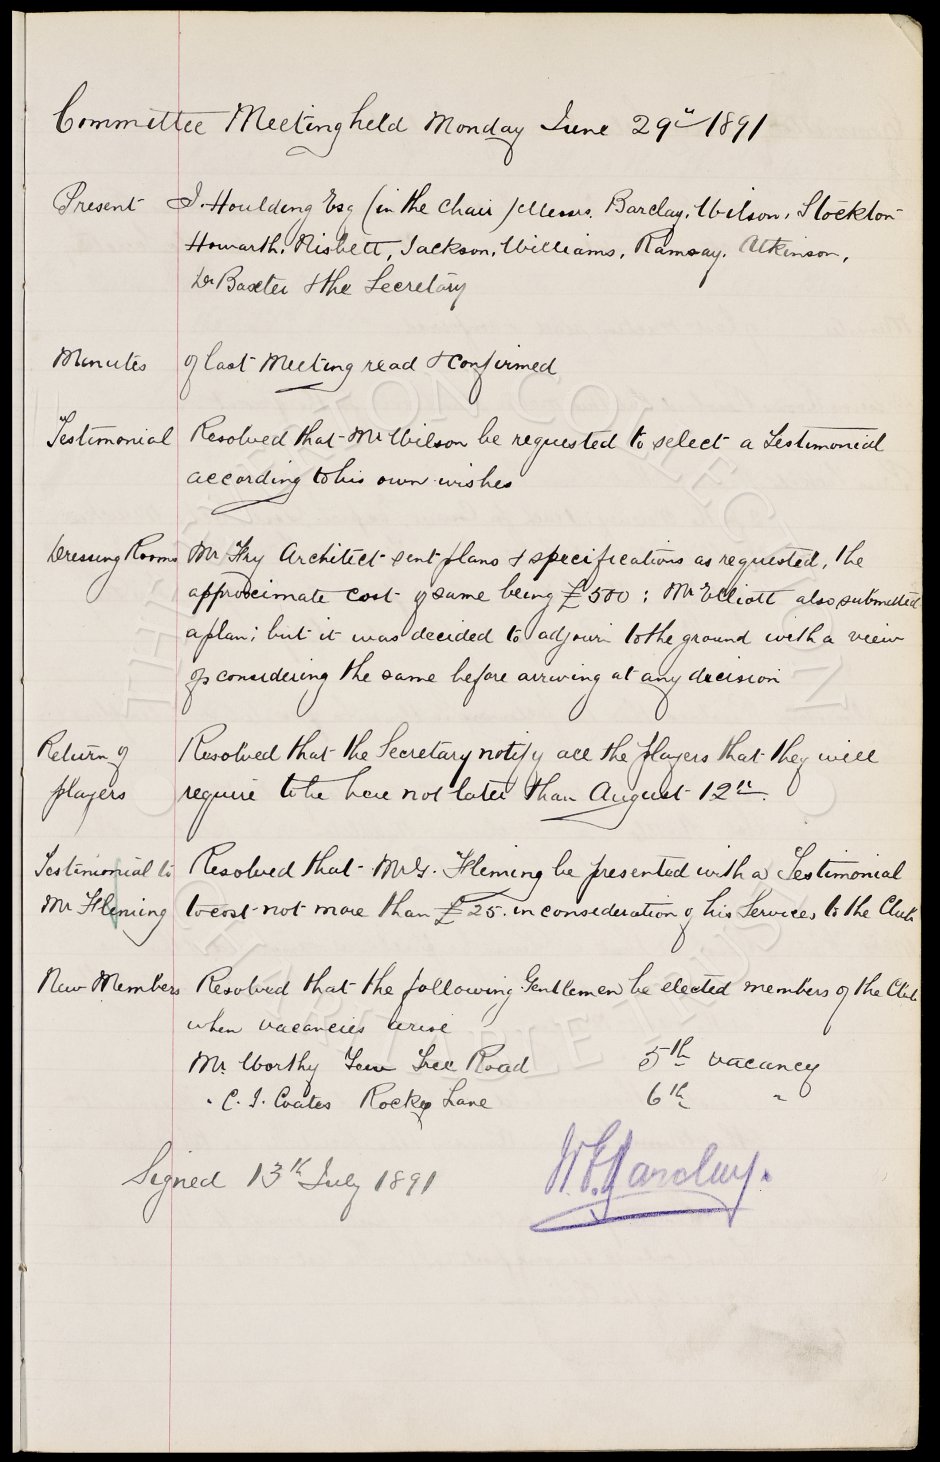 Committee Meeting held Monday June 29th 1891
Present J. Houlding Esq (in the chair) Messrs. Barclay, Wilson, Stockton
Howarth, Nisbett, Jackson, Williams, Ramsay, Atkinson,
Dr Baxter & the Secretary
Minutes of last Meeting read & confirmed
Testimonial Resolved that Mr Wilson be requested to select a Testimonial
according to his own wishes
Dressing Rooms Mr Fry Architect sent plans & specifications as requested, the
approximate cost of same being £500; Mr Elliott also submitted
a plan; but it was decided to adjourn to the ground with a view
of considering the same before arriving at any decision
Return of Resolved that the Secretary notify all the players that they will
players require to be here not later than August 12th.
Testimonial to Resolved that Mr G. Fleming be presented with a Testimonial
Mr Fleming to cost not more than £25. in consideration of his Services to the Club
New Members Resolved that the following Gentlemen be elected members of the Club
when vacancies arise
Mr. Worthy Yew Tree Road 5th vacancy
" C. J. Coates Rocky Lane 6th "
Signed 13th July 1891 W.F. Barclay.
THE EVERTON COLLECTION
CHARITABLE TRUST